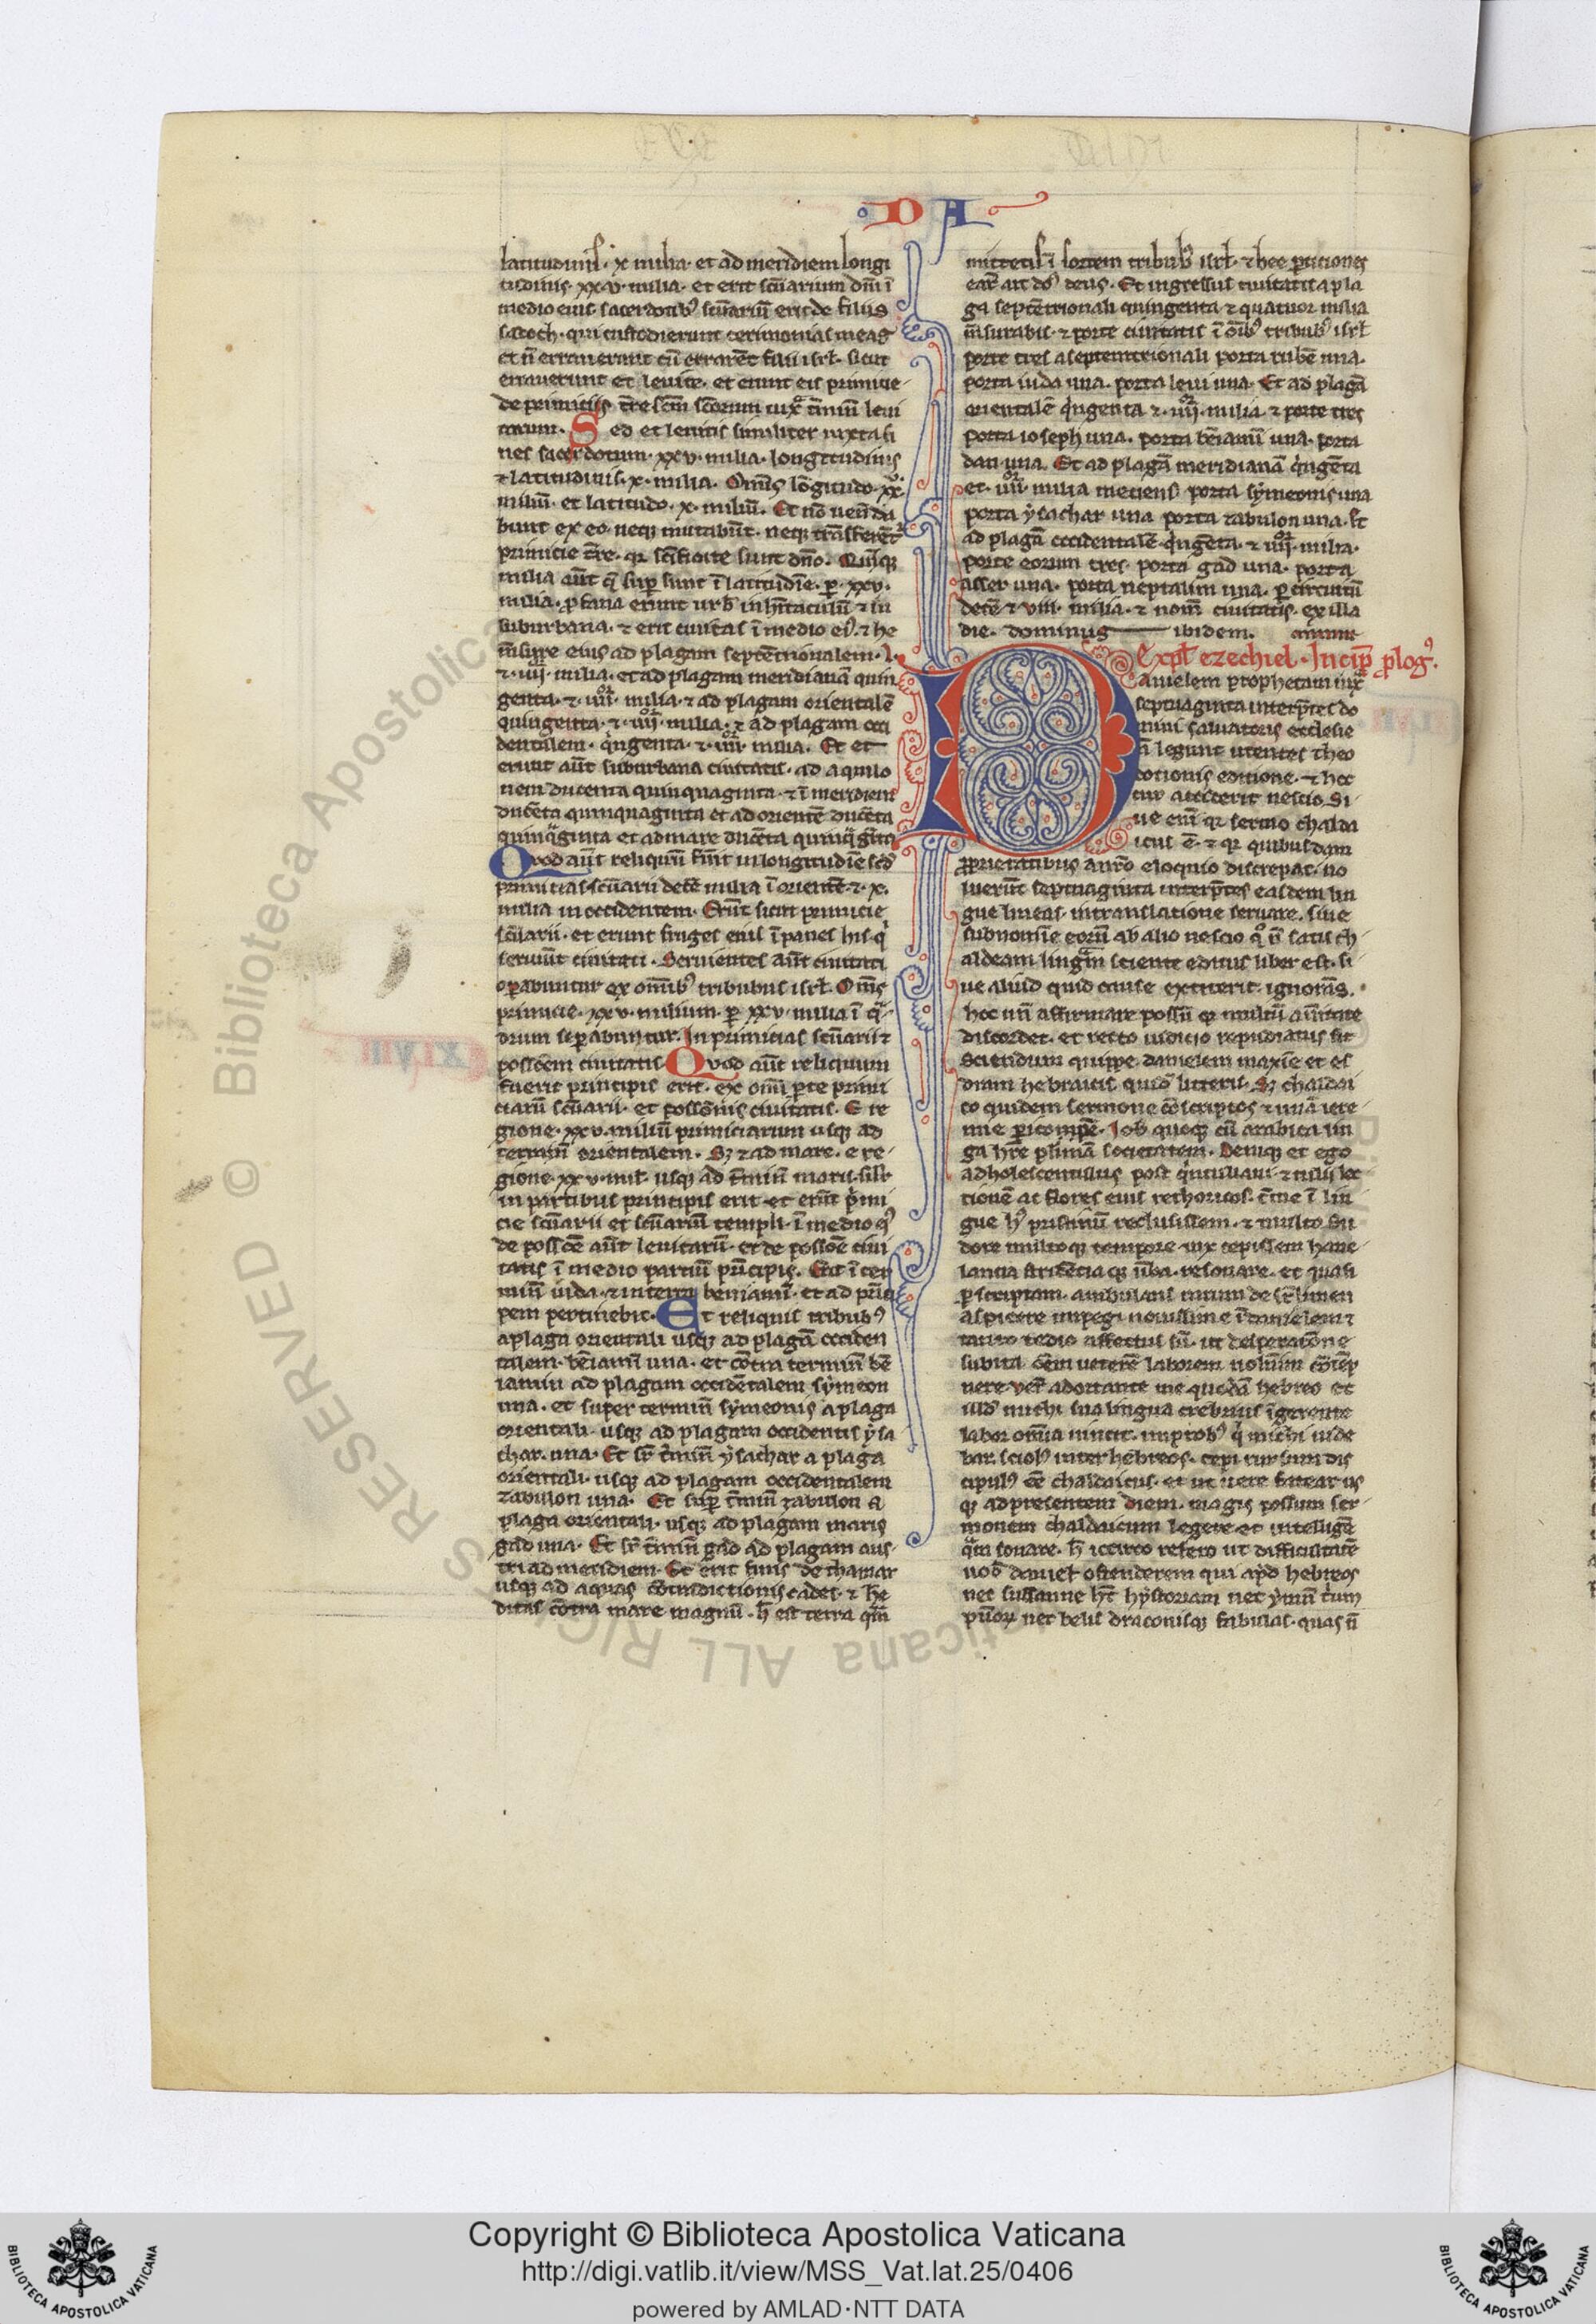 D A
latitudinis · x milia · et ad meridiem longi
tudinis · xxv · milia · et erit sc̄uarium dn̄i ī
medio eius · sacerdotibꝰ sc̄uariū erit de filiis
satoch · qui custodierunt cerimonias meas
et n̄ errauerunt cū errarēt filii isrl̄ · sicut
errauerunt et leuite · et erunt eis primicie
de primiciis t̄re sc̄m sc̄orum iuxͣ t̄minū leui
tarum · Sed et leuitis similiter iuxta fi
nes sacerdotum · xxv · milia · longitudinis
⁊ latitudinis · x · milia · Om̄is lōgitudo · xxͦ ·
miliū · et latitudo · x · miliū · Et nō uenūda
bunt ex eo · neqꝫ mutabūt · neqꝫ trāsferēt᷑
primicie t̄re · qꝛ sc̄ificate sunt dn̄o · Quīqꝫ
milia aūt q̄ suꝑ sunt ī latitudīe · ꝑ · xxv ·
milia · ꝓfana erunt urbꝰ in hītaculū ⁊ in
suburbana · ⁊ erit ciuitas ī medio eiꝰ · ⁊ he
m̄sure eius ad plagam septētrionalem ·
⁊ · iiijͦʳ · milia · et ad plagam meridianā quin
genta · ⁊ · iiijͦʳ · milia · ⁊ ad plagam orientalē
quingenta · ⁊ · iiijͦʳ · milia · ⁊ ad plagam occi
dentalem · qͥngenta · ⁊ · iiijͦʳ · milia · Et et
erunt aūt suburbana ciuitatis · ad aquilo
nem ducenta quinquaginta · ⁊ ī meridiem
ducēta quinquaginta et ad orientē ducēta
quinqͣginta et ad mare ducēta quinqͣgīta
Quod aūt reliquū fūit in longitudīe sc̄dꝫ
primitias sc̄uarii decē milia ī orientē · ⁊ · x ·
milia in occidentem · Erūt sicut primicie
sc̄uarii · et erunt fruges eius ī panes his · qͥ
seruiūt ciuitati · Seruientes aūt ciuitati
oꝑabuntur ex omībꝰ tribubus isrl̄ · Om̄s
primicie · xxv · milium · ꝑ xxv · milia ī qͣ
drum seꝑabuntur · In primitias sc̄uarii ⁊
possc̄em ciuitatis · Quod aūt reliquum
fuerit principis erit · ex omī ꝑte primi
ciarū sc̄uarii · et possōnis ciuitatis · E re
gione · xxv · miliū primiciarum usqꝫ ad
terminū orientalem · Sꝫ ⁊ ad mare · e re
gione · xxv · mil · usqꝫ ad t̄minū maris · silr̄
in partibus principis erit · et erūt pͥmi
cie sc̄uarii et sc̄uariū templi · ī medio eiꝰ
de possc̄e aūt leuitarū · et de possōe ciui
tatis ī medio partiū pͥncipis · Erit ī ter
minū iuda · ⁊ in terra beniamī · et ad pͥnci
pem pertinebit · Et reliquis tribubꝰ
a plaga orientali usqꝫ ad plagā occiden
talem · bēiamī una · et cōtra terminū bē
iamin ad plagam occidētalem symeon
una · et super terminū symeonis a plaga
orientali · usqꝫ ad plagam occidentis ysa
char · una · Et sr̄ t̄minū ysachar a plaga
orientali · usqꝫ ad plagam occidentalem
zabulon una · Et suꝑ t̄minū zabulon a
plaga orientali · usqꝫ ad plagam maris
gad una · Et sr̄ t̄minū gad ad plagam aus
tri ad meridiem · Et erit finis de thamar
usqꝫ ad aquas cōtradictionis cades · ⁊ he
ditas cōtra mare magnū · h̄ est terra qͣm
mittetis ī sortem tribubꝰ isrl̄ · ⁊ hee ꝑticiones
eaꝝ ait dn̄s deus · Et ingressus ciuitatis a pla
ga septētrionali quingenta · ⁊ quatuor milia
m̄surabis · ⁊ porte ciuitatis ī oībꝰ tribubꝰ isrl̄
porte tres a septemtrionali porta rubē una ·
porta iuda una · porta leui una · Et ad plagā
orientalē qͥngenta ⁊ · iiijͦʳ · milia · ⁊ porte tres
porta ioseph una · porta bēiamī una · porta
dan una · Et ad plagā meridianā qͥngēta
et · iiijͦʳ milia metiens porta symeonis una
porta ysachar una porta zabulon una · Et
ad plagā occidentalē · qͥngēta · ⁊ iiijͦʳ · milia ·
porte eorum tres · porta gad una · porta
asser una · porta neptalim una · ꝑ circuitū
decē ⁊ viii · milia · ⁊ nom̄ ciuitatis · ex illa
die · dominus ibidem · amen
Expl̄ ezechiel · Incip̄ ꝓlogꝰ ·
Danielem prophetam iuxͣ
septuaginta interp̄tes do
mini saluatoris ecclesie
n̄ legunt utentes theo
dotionis editione · ⁊ hoc
cur acciderit nescio Si
ue enī qꝛ sermo chalda
icus ē · ⁊ qꝛ quibusdam
ꝓprietatibus a nr̄o eloquio discrepat · no
luerūt septuaginta interp̄tes easdem lin
gue lineas · in translatione seruare · siue
sub nomīe eorū ab alio nescio qͦ n̄ satis ch
aldeam linguā sciente editus liber est · si
ue aliud quid cause extiterit · ignorās ·
hoc unū affirmare possū qꝛ multū a ūitate
discordet · et recto iudicio repudiatus sit
Sciendum quippe · danielem maxīe et es
dram hebraicis quidē litteris · Sꝫ chaldai
co quidem sermone cōscriptos ⁊ unā iere
mie ꝑicopē · Iob quoqꝫ cū arabica lin
gua hr̄e plimā societatem · Deniqꝫ et ego
adholescentulus post qͥntiliani · ⁊ tulii lec
tionē ac flores eius rethoricos · cū me ī lin
gue hꝰ pistrinū reclusissem · ⁊ multo su
dore multoqꝫ tempore uix cepissem hane
lantia stridētia qꝫ ūba · resonare · et quasi
ꝑ scriptam · ambulans mirum de sr̄ lumen
aspicere impegi nouissime ī danielem ⁊
tanto tedio affectus sū · ut desperatiōne
subita oēm ueterē laborem uoluīm cōtēp
nere · Ver̄ adortante me quodā hebreo et
illd̄ michi sua lingua crebrius īgerente
labor omīa uincit · improbꝰ qͥ michi uide
bar · sciolꝰ inter hebreos · cepi rursum dis
cipulꝰ eē chaldaicus · et ut uere fatear us
qꝫ ad presentem diem · magis possum ser
monem chaldaicum legere et intelligē
qͣm sonare · h̄ iccirco refero ut difficultatē
uob̄ daniel ostenderem qui apd̄ hebreos
nec sussanne hēt hystoriam nec ymnū triū
pūoꝝ nec belis draconisqꝫ fabulas · quas n̄
Copyright © Biblioteca Apostolica Vaticana
http://digi.vatlib.it/view/MSS_Vat.lat.25/0406
powered by AMLAD·NTT DATA